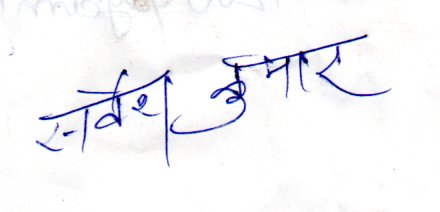 सर्वेश कुमार